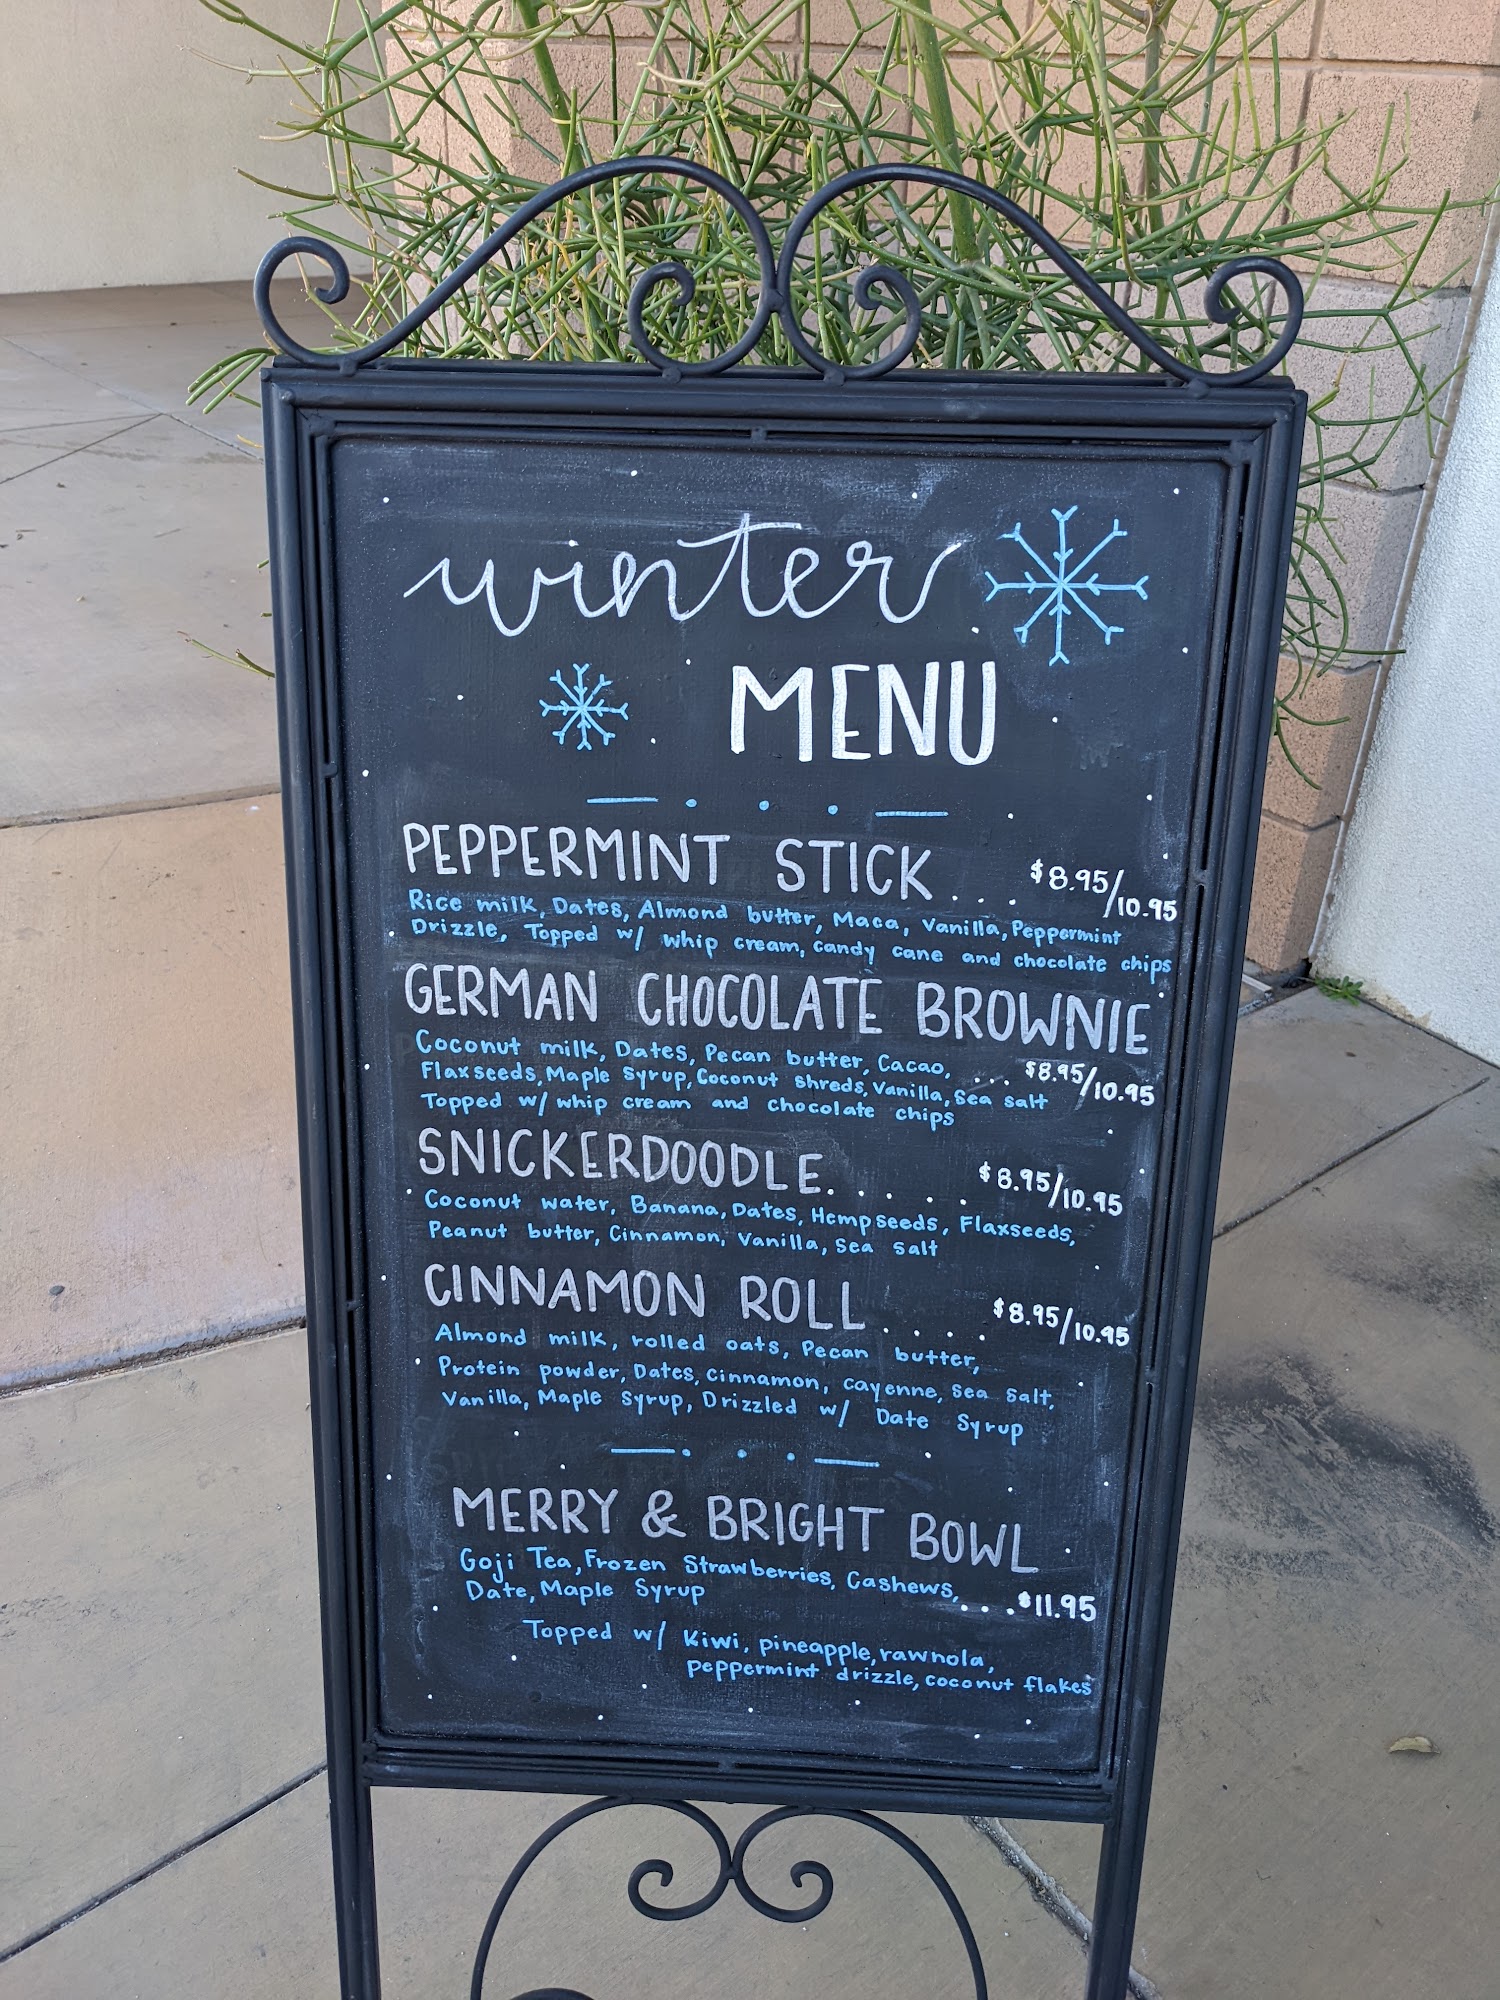 winter
MENU
PEPPERMINT STICK.... $8.95/10.95
Rice milk, Dates, Almond butter, Maca, Vanilla, Peppermint
Drizzle, Topped w/ whip cream, candy cane and chocolate chips
GERMAN CHOCOLATE BROWNIE
Coconut milk, Dates, Pecan butter, Cacao, ... $8.95/10.95
Flaxseeds, Maple Syrup, Coconut shreds, Vanilla, Sea salt
Topped w/ whip cream and chocolate chips
SNICKERDOODLE...... $8.95/10.95
Coconut water, Banana, Dates, Hempseeds, Flaxseeds,
Peanut butter, Cinnamon, Vanilla, Sea salt
CINNAMON ROLL..... $8.95/10.95
Almond milk, rolled oats, Pecan butter,
Protein powder, Dates, Cinnamon, cayenne, Sea salt,
Vanilla, Maple Syrup, Drizzled w/ Date Syrup
MERRY & BRIGHT BOWL
Goji Tea, Frozen Strawberries, Cashews,
Date, Maple Syrup ....$11.95
Topped w/ Kiwi, pineapple, rawnola,
peppermint drizzle, coconut flakes